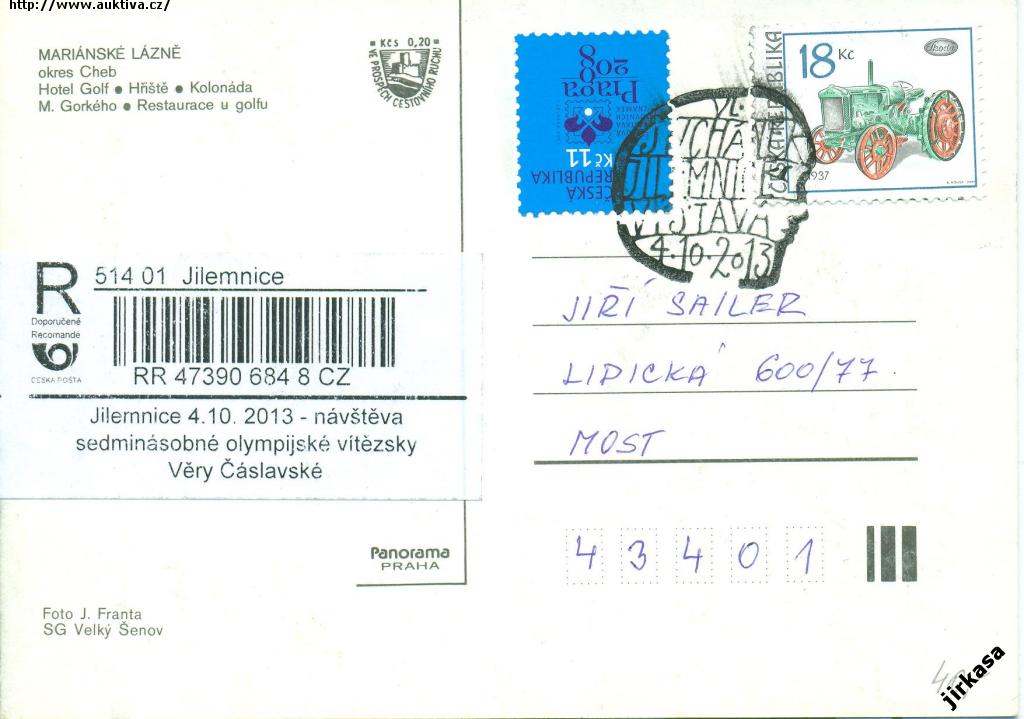 http://www.auktiva.cz/
MARIÁNSKÉ LÁZNĚ
okres Cheb
Hotel Golf ● Hřiště ● Kolonáda
M. Gorkého ● Restaurace u golfu
Kčs 0,20
VE PROSPĚCH CESTOVNÍHO RUCHU
Praga
2008
Kč 11
ČESKÁ
REPUBLIKA
18 Kč
Škoda
ČESKÁ REPUBLIKA
1937
JILEMNI
VÝSTAVA
4.10.2013
R
Doporučeně
Recomandé
ČESKÁ POŠTA
514 01 Jilemnice
RR 47390 684 8 CZ
Jilemnice 4.10. 2013 - návštěva
sedminásobné olympijské vítězsky
Věry Čáslavské
JIŘÍ SAILER
LIDICKÁ 600/77.
MOST
43401
Panorama
PRAHA
Foto J. Franta
SG Velký Šenov
jirkasa